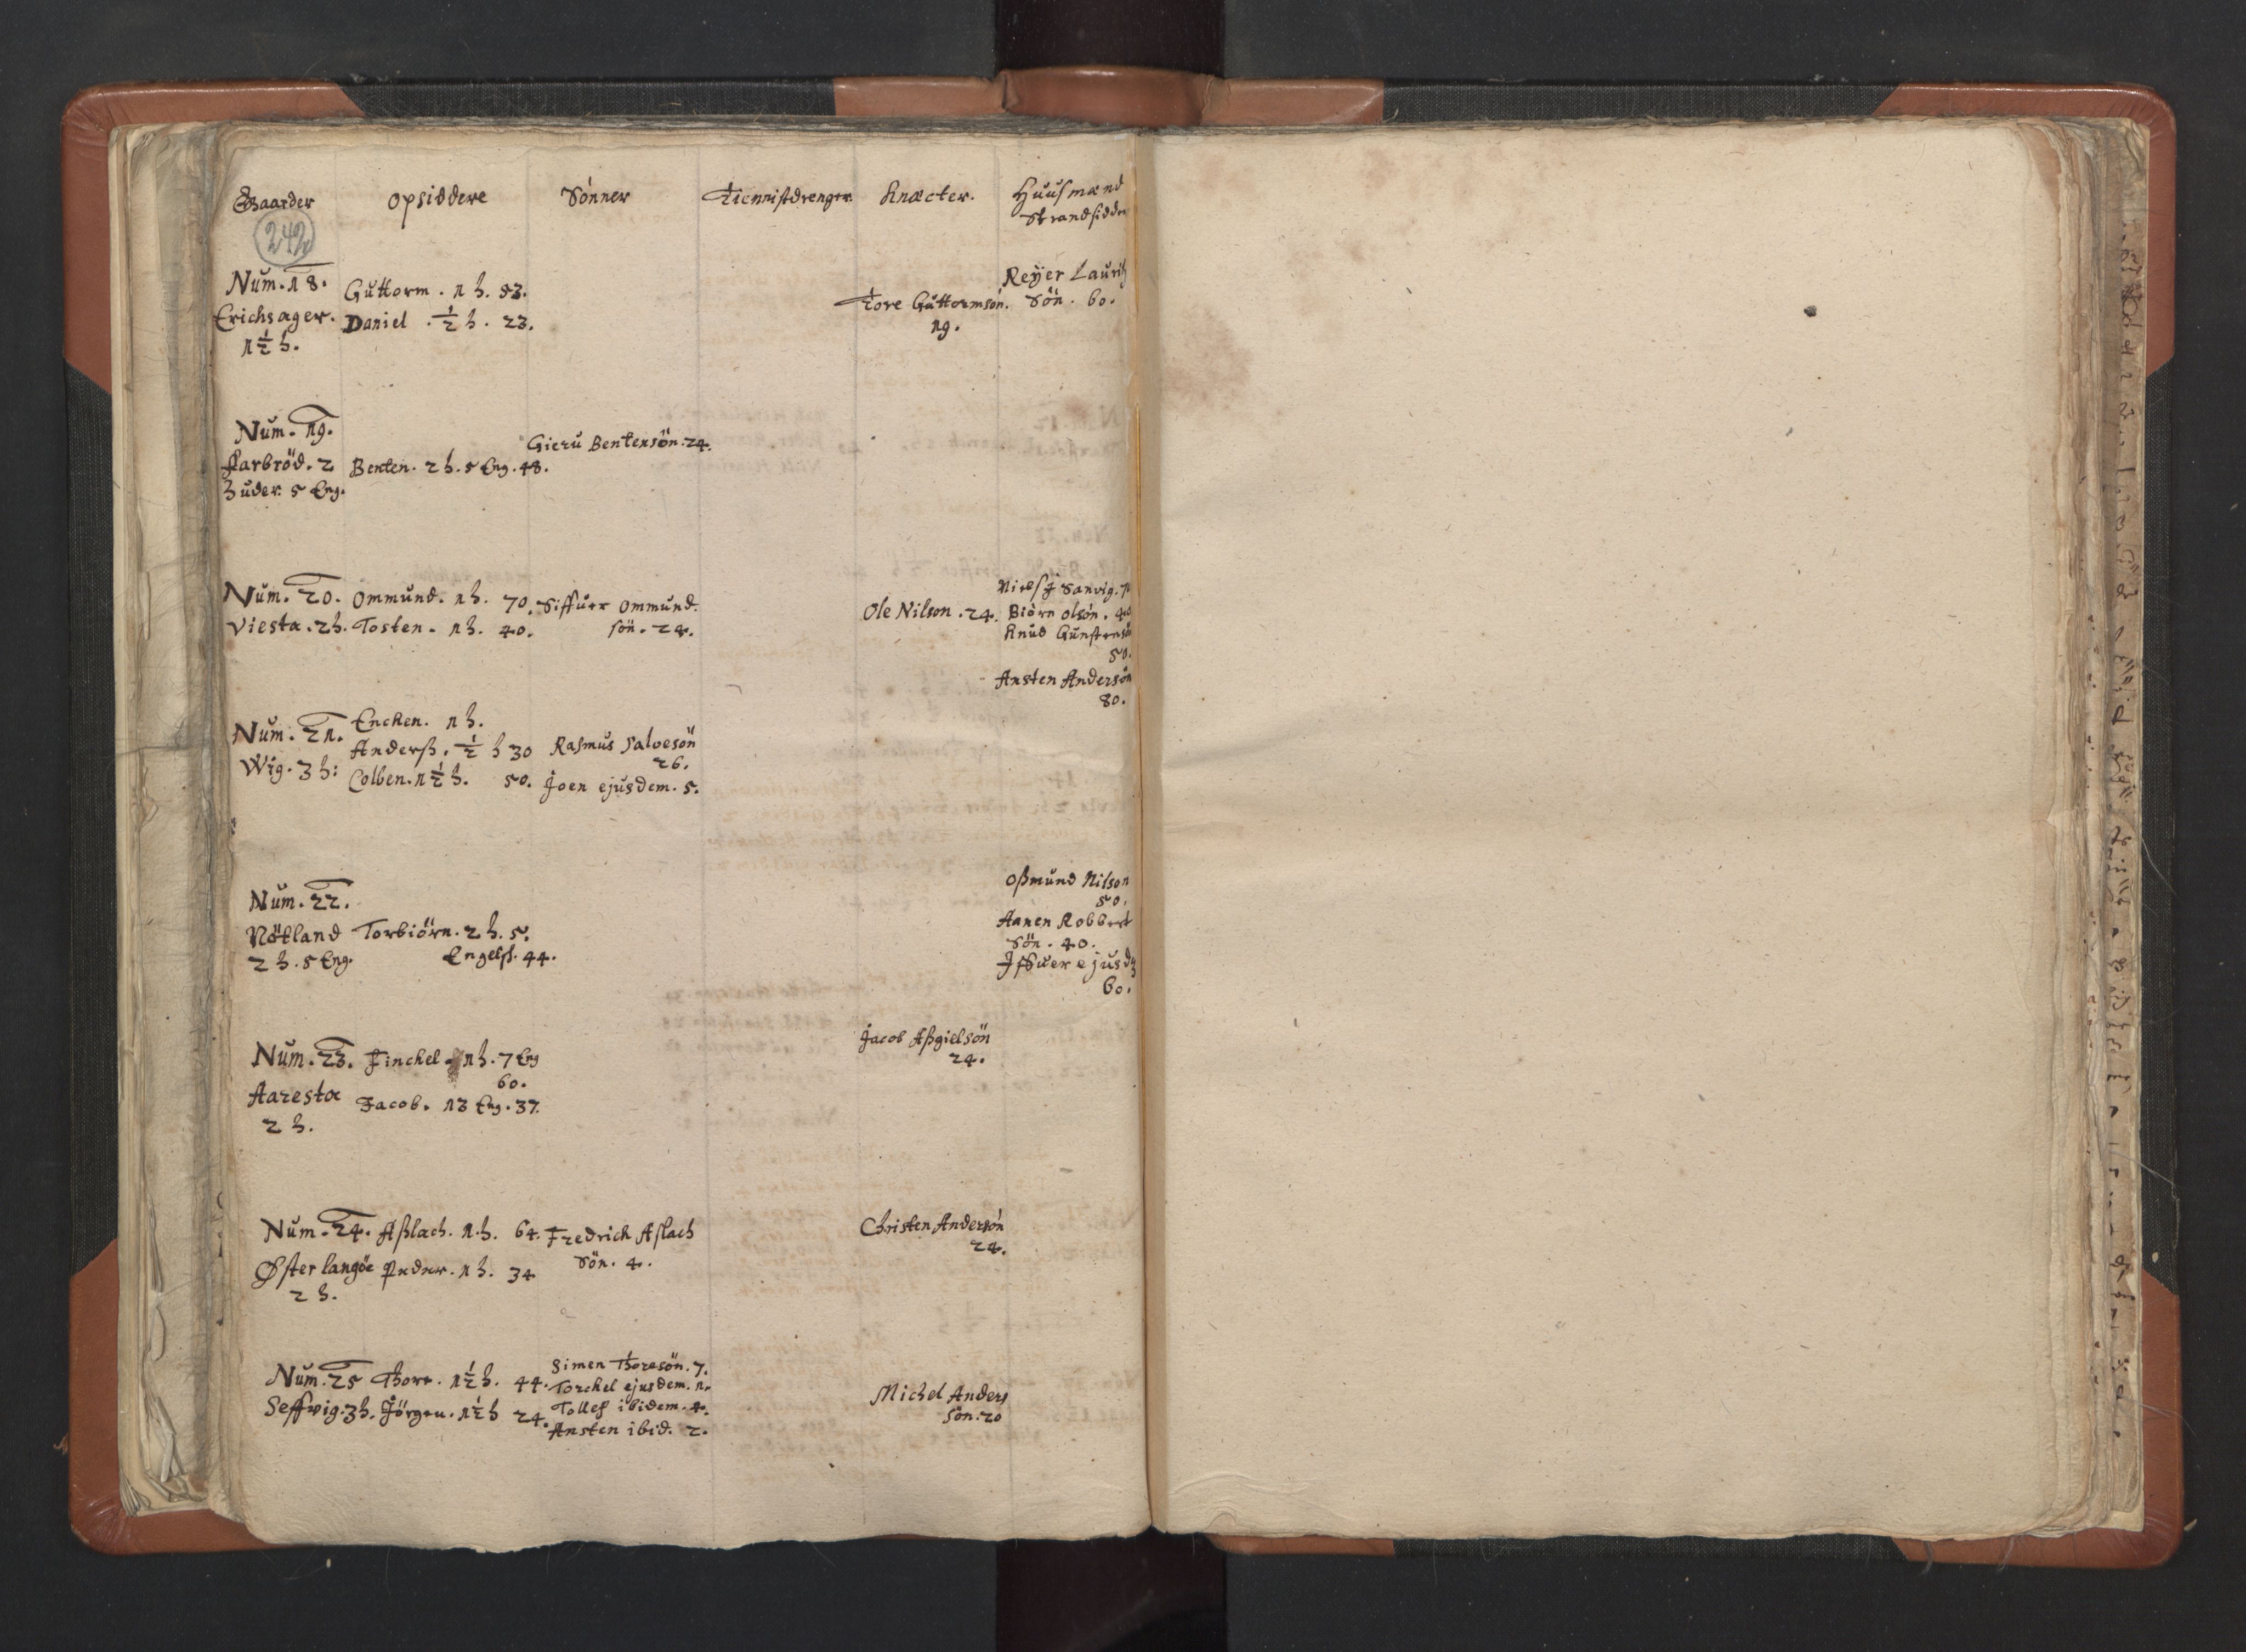 Gaarder opsiddere Sönner Tiennistdrenger Knæcter. Huusmænd
Strandsidder
242
Num. 18. Guttorm. 1 h. 53. Reÿer Lauritz
Erichsager. Daniel. ½ h. 23. Tore Guttormsön. Sön. 60.
1½ h. 19.
Num. 19.
Farbröd. 2 Benten. 2 h. 5 Eng. 48. Gieru Bentensön. 24.
huder 5 Eng.
Num. 20. Ommund. 1 h. 70. Siffuer Ommund Ole Nilson. 24. Sanvig.
Viesta. 2 h. Tosten. 1 h. 40. sön. 24. Biörn olsön. 40
Knud Gunstensön
50.
Ansten Andersön
80.
Num. 21. Enchen. 1 h.
Wiig. 3 h: Anderß. ½ h 30 Rasmus Salvesön
26.
Colben. 1½ h. 50. Joen ejusdem. 5.
Oßmund Nilson
50.
Num. 22. Aanen Robbert
Nötland Torbiörn. 2 h. 5. Sön. 40.
2 h. 5 Eng. Engelß. 44. Ifsuer ejusd
60.
Num. 23. Finchel. 1 h. 7 Eng Jacob Aßgielsön
60. 24.
Aaresta Jacob. 13 Eng. 37.
2 h.
Num. 24. Aßlach. 1. h. 64. Fredrich Aslach Christen Andersön
Øster langöe Peder. 1 h. 34 Sön. 4. 24.
2 h.
Num. 25 Thore. 1½ h. 44. Simen Thoresön. 7. Michel Anders
Torchel ejusdem. 1. sön. 20
Seffvig. 3 h. Jörgen. 1½ h 24. Tollef ibidem. 4.
Ansten ibid. 2.